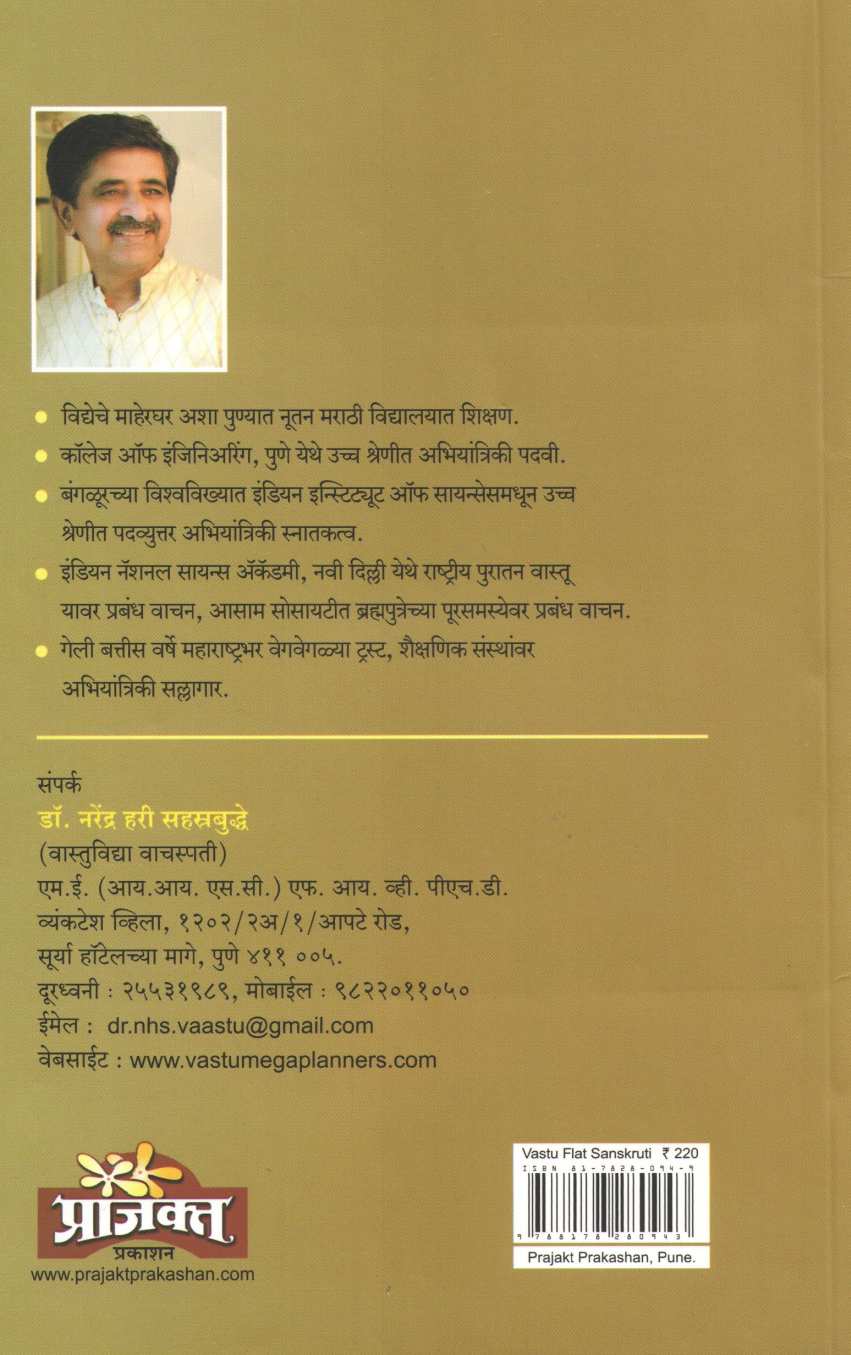 • विद्येचे माहेरघर अशा पुण्यात नूतन मराठी विद्यालयात शिक्षण.
• कॉलेज ऑफ इंजिनिअरिंग, पुणे येथे उच्च श्रेणीत अभियांत्रिकी पदवी.
• बंगळूरच्या विश्वविख्यात इंडियन इन्स्टिट्यूट ऑफ सायन्सेसमधून उच्च
श्रेणीत पदव्युत्तर अभियांत्रिकी स्नातकत्व.
• इंडियन नॅशनल सायन्स ॲकॅडमी, नवी दिल्ली येथे राष्ट्रीय पुरातन वास्तू
यावर प्रबंध वाचन, आसाम सोसायटीत ब्रह्मपुत्रेच्या पूरसमस्येवर प्रबंध वाचन.
• गेली बत्तीस वर्षे महाराष्ट्रभर वेगवेगळ्या ट्रस्ट, शैक्षणिक संस्थांवर
अभियांत्रिकी सल्लागार.
संपर्क
डॉ. नरेंद्र हरी सहस्रबुद्धे
(वास्तुविद्या वाचस्पती)
एम.ई. (आय.आय. एस.सी.) एफ. आय. व्ही. पीएच.डी.
व्यंकटेश व्हिला, १२०२/२अ/१/आपटे रोड,
सूर्या हॉटेलच्या मागे, पुणे ४११ ००५.
दूरध्वनी : २५५३१९८९, मोबाईल : ९८२२०११०५०
ईमेल : dr.nhs.vaastu@gmail.com
वेबसाईट : www.vastumegaplanners.com
प्राजक्त
प्रकाशन
www.prajaktprakashan.com
Vastu Flat Sanskruti ₹ 220
ISBN 81-7828-094-9
9 788178 280943
Prajakt Prakashan, Pune.